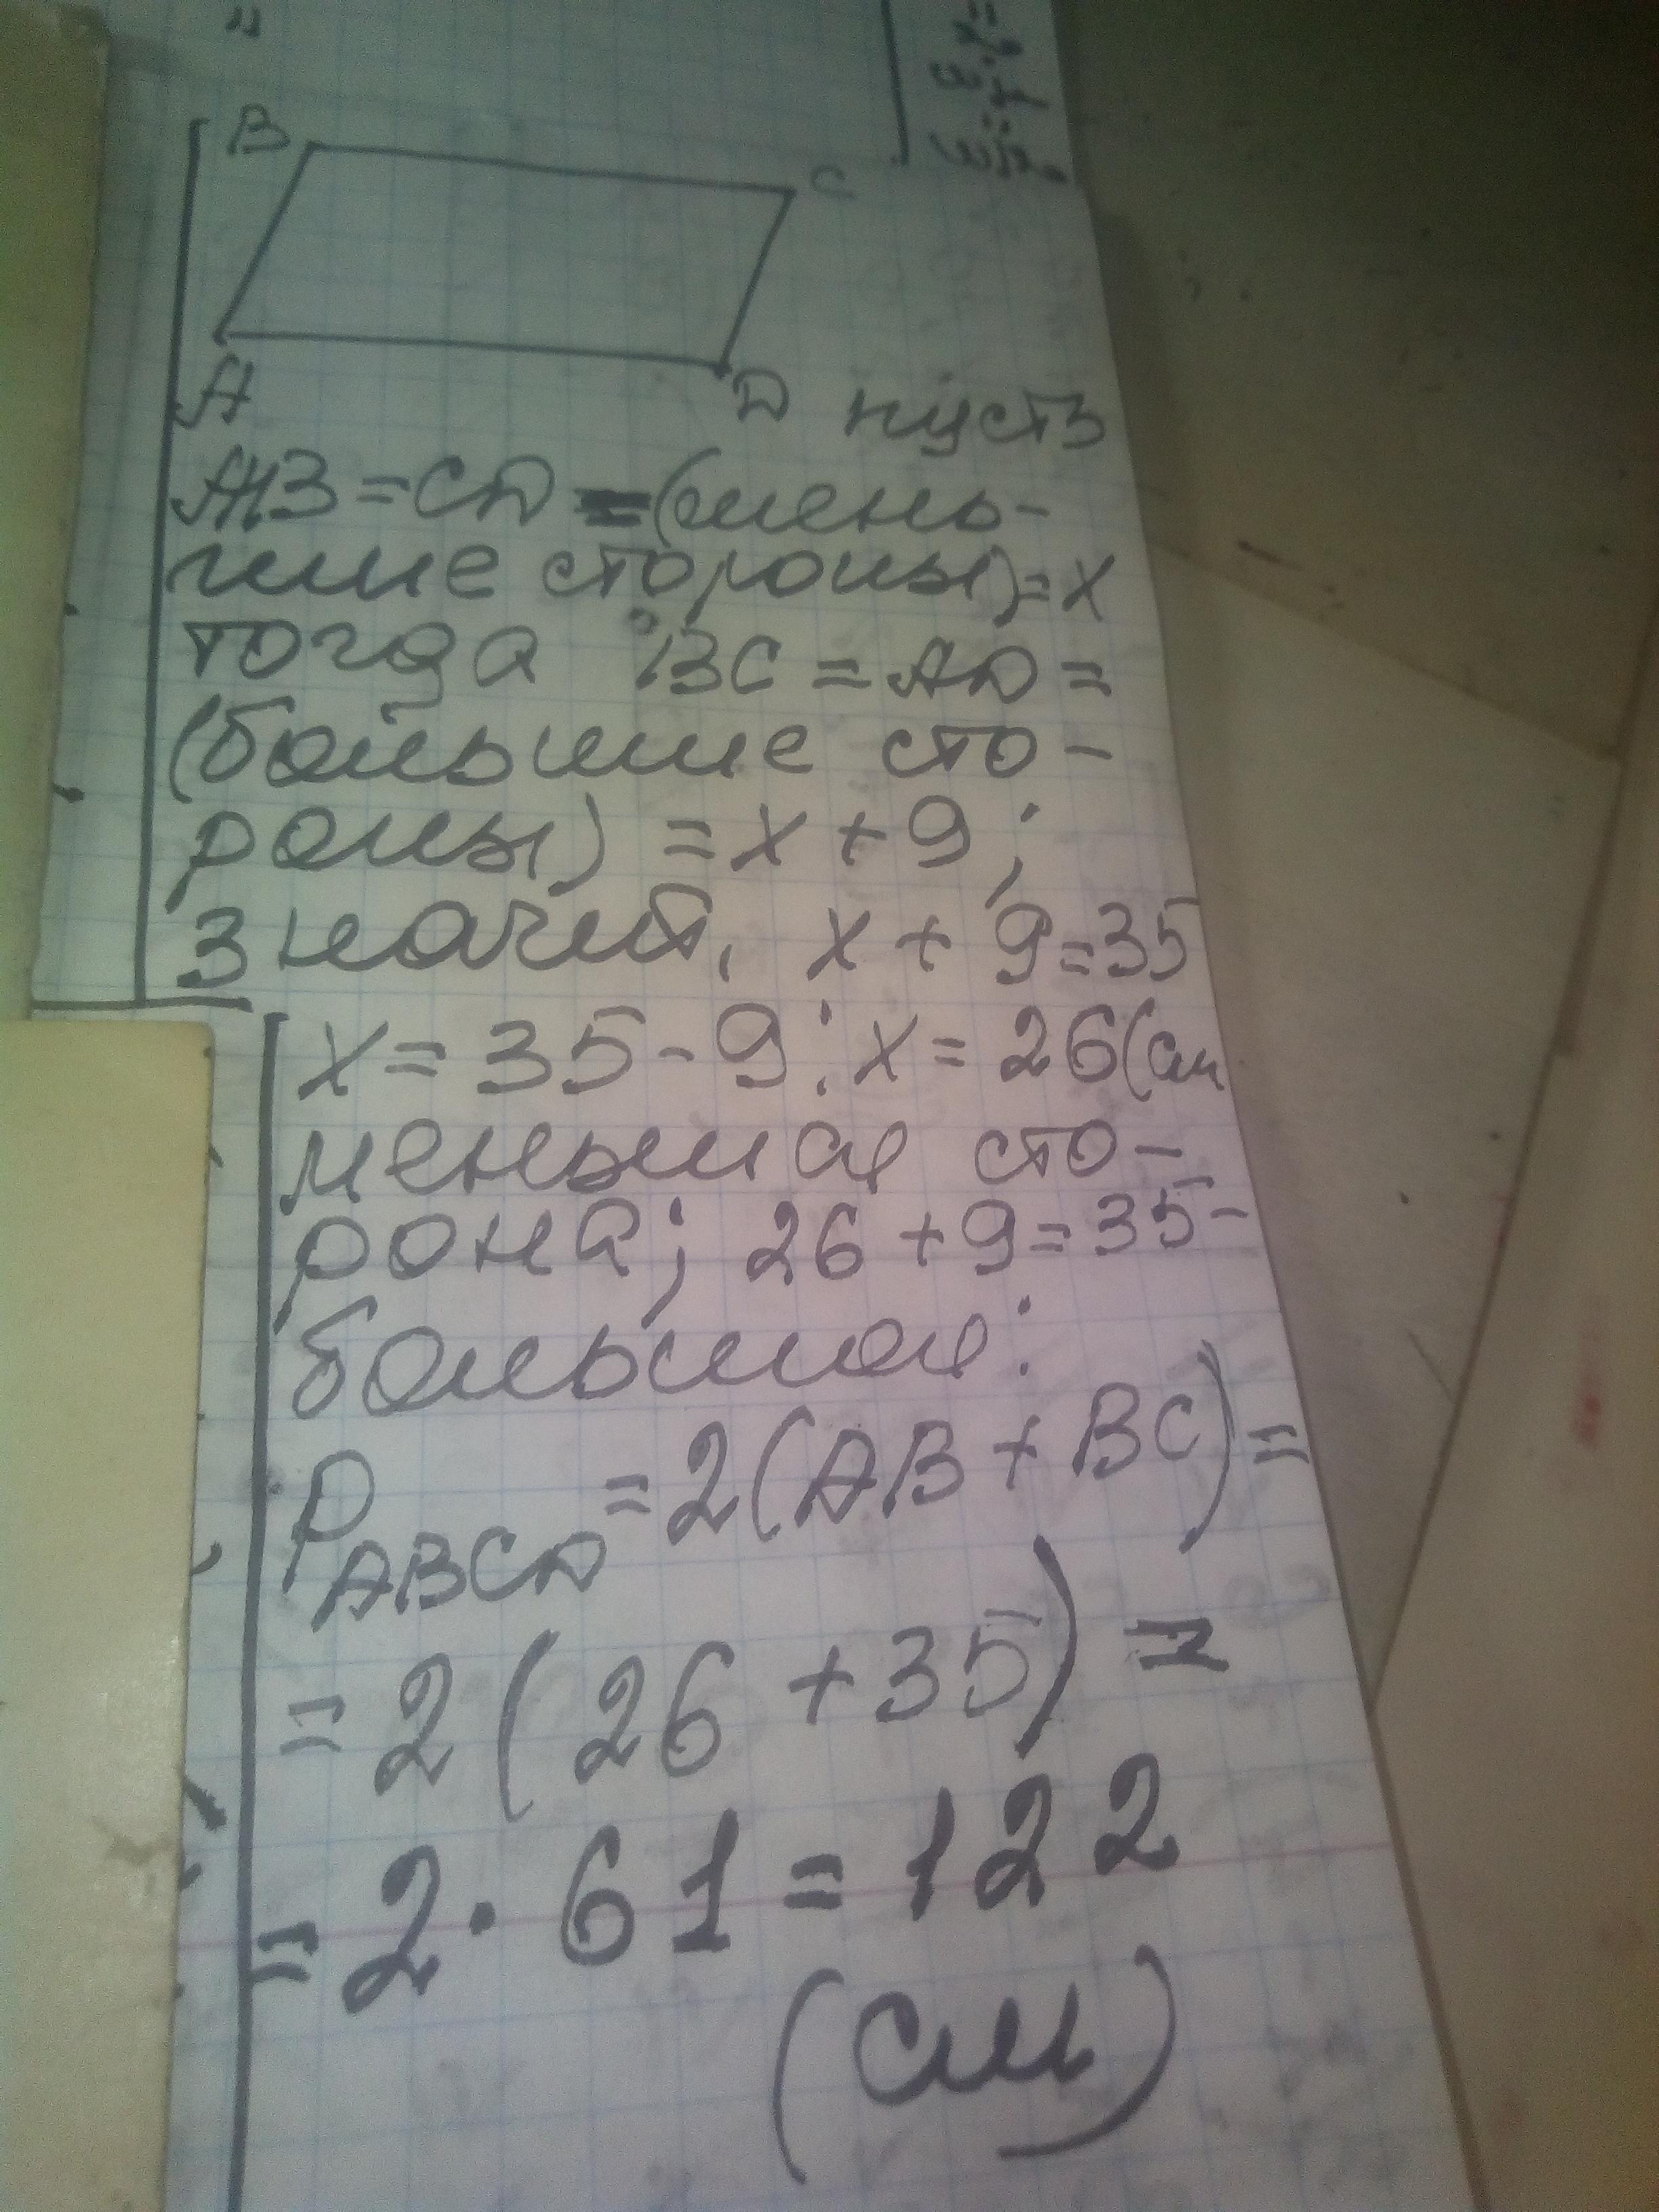 B
C
A
D пусть
AB = CD = (мень-
шие стороны) = x
тогда BC = AD =
(большие сто-
роны) = x + 9;
значит, x + 9 = 35
x = 35 - 9; x = 26 (см
меньшая сто-
рона; 26 + 9 = 35 -
большая;
PABCD = 2 (AB + BC) =
= 2 (26 + 35) =
= 2 · 61 = 122
(см)